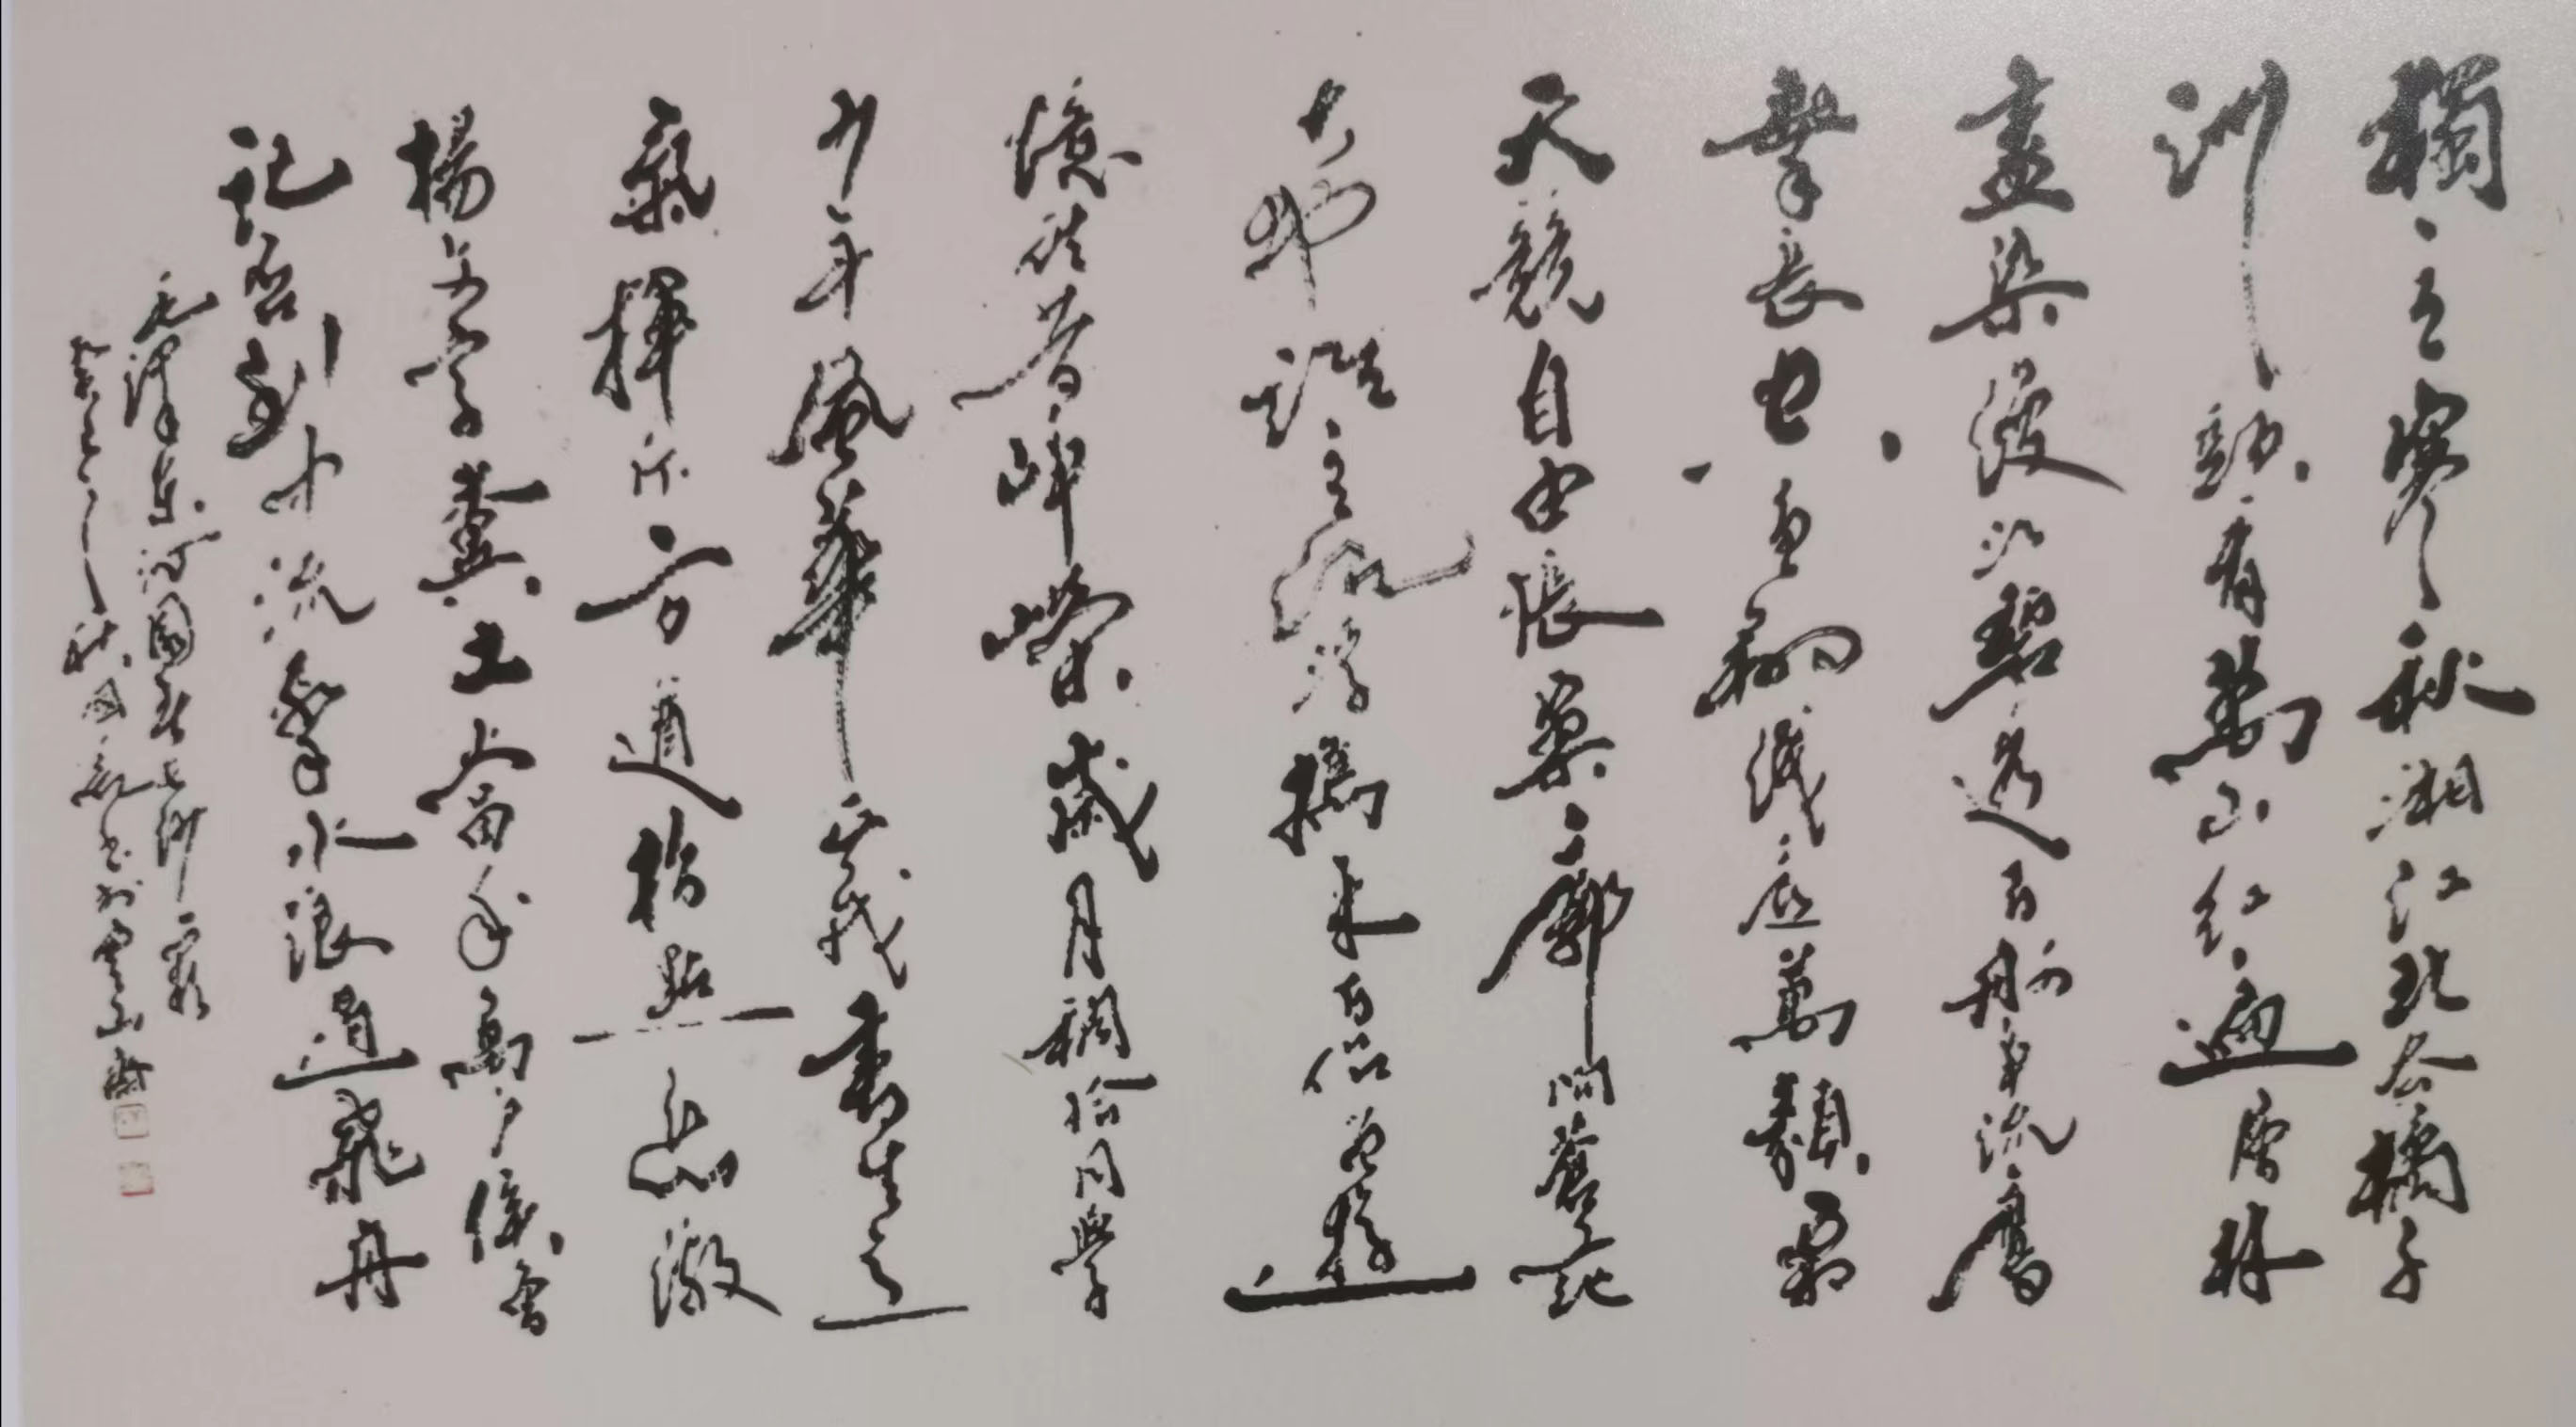 獨立寒秋湘江北去橘子
洲頭看萬山紅遍層林
盡染漫江碧透百舸爭流鷹
擊長空魚翔淺底萬類霜
天競自由悵寥廓問蒼茫
大地誰主沉浮攜來百侶曾遊
憶往昔崢嶸歲月稠恰同學
少年風華正茂書生意
氣揮斥方遒指點江山激
揚文字糞土當年萬戶侯曾
記否到中流擊水浪遏飛舟
毛澤東沁園春長沙
秋月書於雲山齋